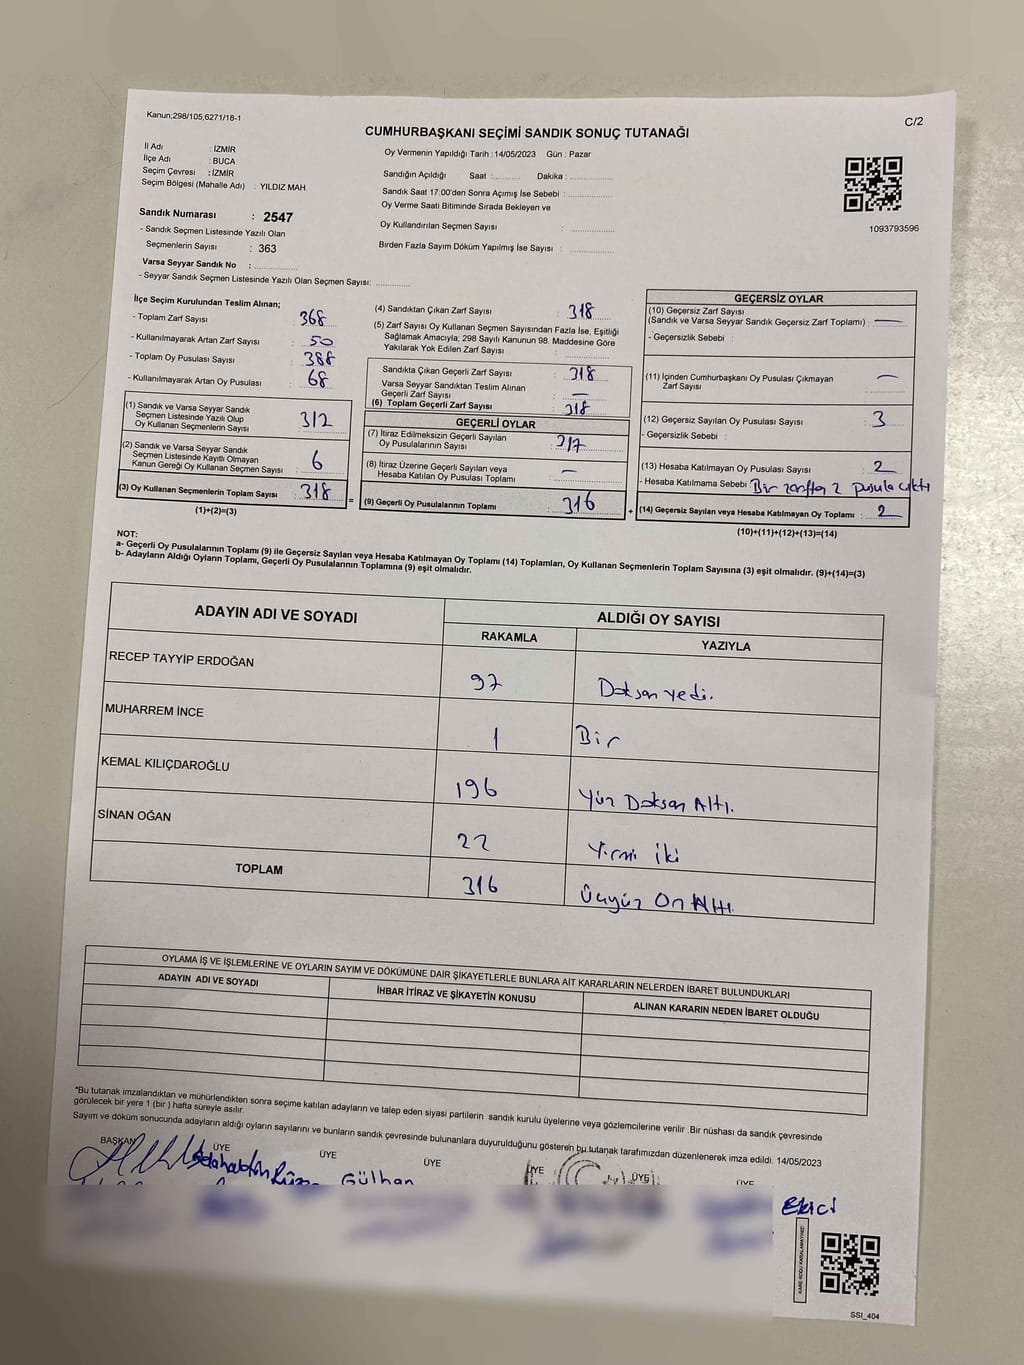 Kanun;298/105,6271/18-1
C/2
CUMHURBAŞKANI SEÇİMİ SANDIK SONUÇ TUTANAĞI
İl Adı : İZMİR
İlçe Adı : BUCA
Seçim Çevresi : İZMİR
Seçim Bölgesi (Mahalle Adı) : YILDIZ MAH.
Oy Vermenin Yapıldığı Tarih : 14/05/2023 Gün : Pazar
Sandığın Açıldığı Saat :........... Dakika :...............
Sandık Saat 17:00'den Sonra Açımış İse Sebebi :...............
Oy Verme Saati Bitiminde Sırada Bekleyen ve
Oy Kullandırılan Seçmen Sayısı :...............
Birden Fazla Sayım Döküm Yapılmış İse Sayısı :...............
1093793596
Sandık Numarası : 2547
- Sandık Seçmen Listesinde Yazılı Olan
Seçmenlerin Sayısı : 363
Varsa Seyyar Sandık No :...............
- Seyyar Sandık Seçmen Listesinde Yazılı Olan Seçmen Sayısı: ............
İlçe Seçim Kurulundan Teslim Alınan;
- Toplam Zarf Sayısı : 368
- Kullanılmayarak Artan Zarf Sayısı : 50
- Toplam Oy Pusulası Sayısı : 388
- Kullanılmayarak Artan Oy Pusulası : 68
(1) Sandık ve Varsa Seyyar Sandık
Seçmen Listesinde Yazılı Olup
Oy Kullanan Seçmenlerin Sayısı : 312
(2) Sandık ve Varsa Seyyar Sandık
Seçmen Listesinde Kayıtlı Olmayan
Kanun Gereği Oy Kullanan Seçmen Sayısı : 6
(3) Oy Kullanan Seçmenlerin Toplam Sayısı : 318
(1)+(2)=(3)
=
(4) Sandıktan Çıkan Zarf Sayısı : 318
(5) Zarf Sayısı Oy Kullanan Seçmen Sayısından Fazla İse, Eşitliği
Sağlamak Amacıyla; 298 Sayılı Kanunun 98. Maddesine Göre
Yakılarak Yok Edilen Zarf Sayısı :
Sandıkta Çıkan Geçerli Zarf Sayısı : 318
Varsa Seyyar Sandıktan Teslim Alınan
Geçerli Zarf Sayısı : —
(6) Toplam Geçerli Zarf Sayısı : 318
GEÇERLİ OYLAR
(7) İtiraz Edilmeksizin Geçerli Sayılan
Oy Pusulalarının Sayısı : 317
(8) İtiraz Üzerine Geçerli Sayılan veya
Hesaba Katılan Oy Pusulası Toplamı : —
(9) Geçerli Oy Pusulalarının Toplamı : 316
+
GEÇERSİZ OYLAR
(10) Geçersiz Zarf Sayısı
(Sandık ve Varsa Seyyar Sandık Geçersiz Zarf Toplamı) : —
- Geçersizlik Sebebi :
(11) İçinden Cumhurbaşkanı Oy Pusulası Çıkmayan
Zarf Sayısı : —
(12) Geçersiz Sayılan Oy Pusulası Sayısı : 3
- Geçersizlik Sebebi :
(13) Hesaba Katılmayan Oy Pusulası Sayısı : 2
- Hesaba Katılmama Sebebi : Bir zarftan 2 pusula çıktı
(14) Geçersiz Sayılan veya Hesaba Katılmayan Oy Toplamı : 2
(10)+(11)+(12)+(13)=(14)
NOT:
a- Geçerli Oy Pusulalarının Toplamı (9) ile Geçersiz Sayılan veya Hesaba Katılmayan Oy Toplamı (14) Toplamları, Oy Kullanan Seçmenlerin Toplam Sayısına (3) eşit olmalıdır. (9)+(14)=(3)
b- Adayların Aldığı Oyların Toplamı, Geçerli Oy Pusulalarının Toplamına (9) eşit olmalıdır.
ADAYIN ADI VE SOYADI
ALDIĞI OY SAYISI
RAKAMLA YAZIYLA
RECEP TAYYİP ERDOĞAN 97 Doksan yedi.
MUHARREM İNCE 1 Bir
KEMAL KILIÇDAROĞLU 196 Yüz Doksan Altı.
SİNAN OĞAN 22 Yirmi iki
TOPLAM 316 Üçyüz On Altı.
OYLAMA İŞ VE İŞLEMLERİNE VE OYLARIN SAYIM VE DÖKÜMÜNE DAİR ŞİKAYETLERLE BUNLARA AİT KARARLARIN NELERDEN İBARET BULUNDUKLARI
ADAYIN ADI VE SOYADI İHBAR İTİRAZ VE ŞİKAYETİN KONUSU ALINAN KARARIN NEDEN İBARET OLDUĞU
*Bu tutanak imzalandıktan ve mühürlendikten sonra seçime katılan adayların ve talep eden siyasi partilerin sandık kurulu üyelerine veya gözlemcilerine verilir .Bir nüshası da sandık çevresinde
görülecek bir yere 1 (bir ) hafta süreyle asılır.
Sayım ve döküm sonucunda adayların aldığı oyların sayılarını ve bunların sandık çevresinde bulunanlara duyurulduğunu gösteren bu tutanak tarafımızdan düzenlenerek imza edildi. 14/05/2023
BAŞKAN ÜYE ÜYE ÜYE ÜYE ÜYE ÜYE
Selahattin Gülhan
Ekici
KARE KODU KARALAMAYINIZ!
SSI_404